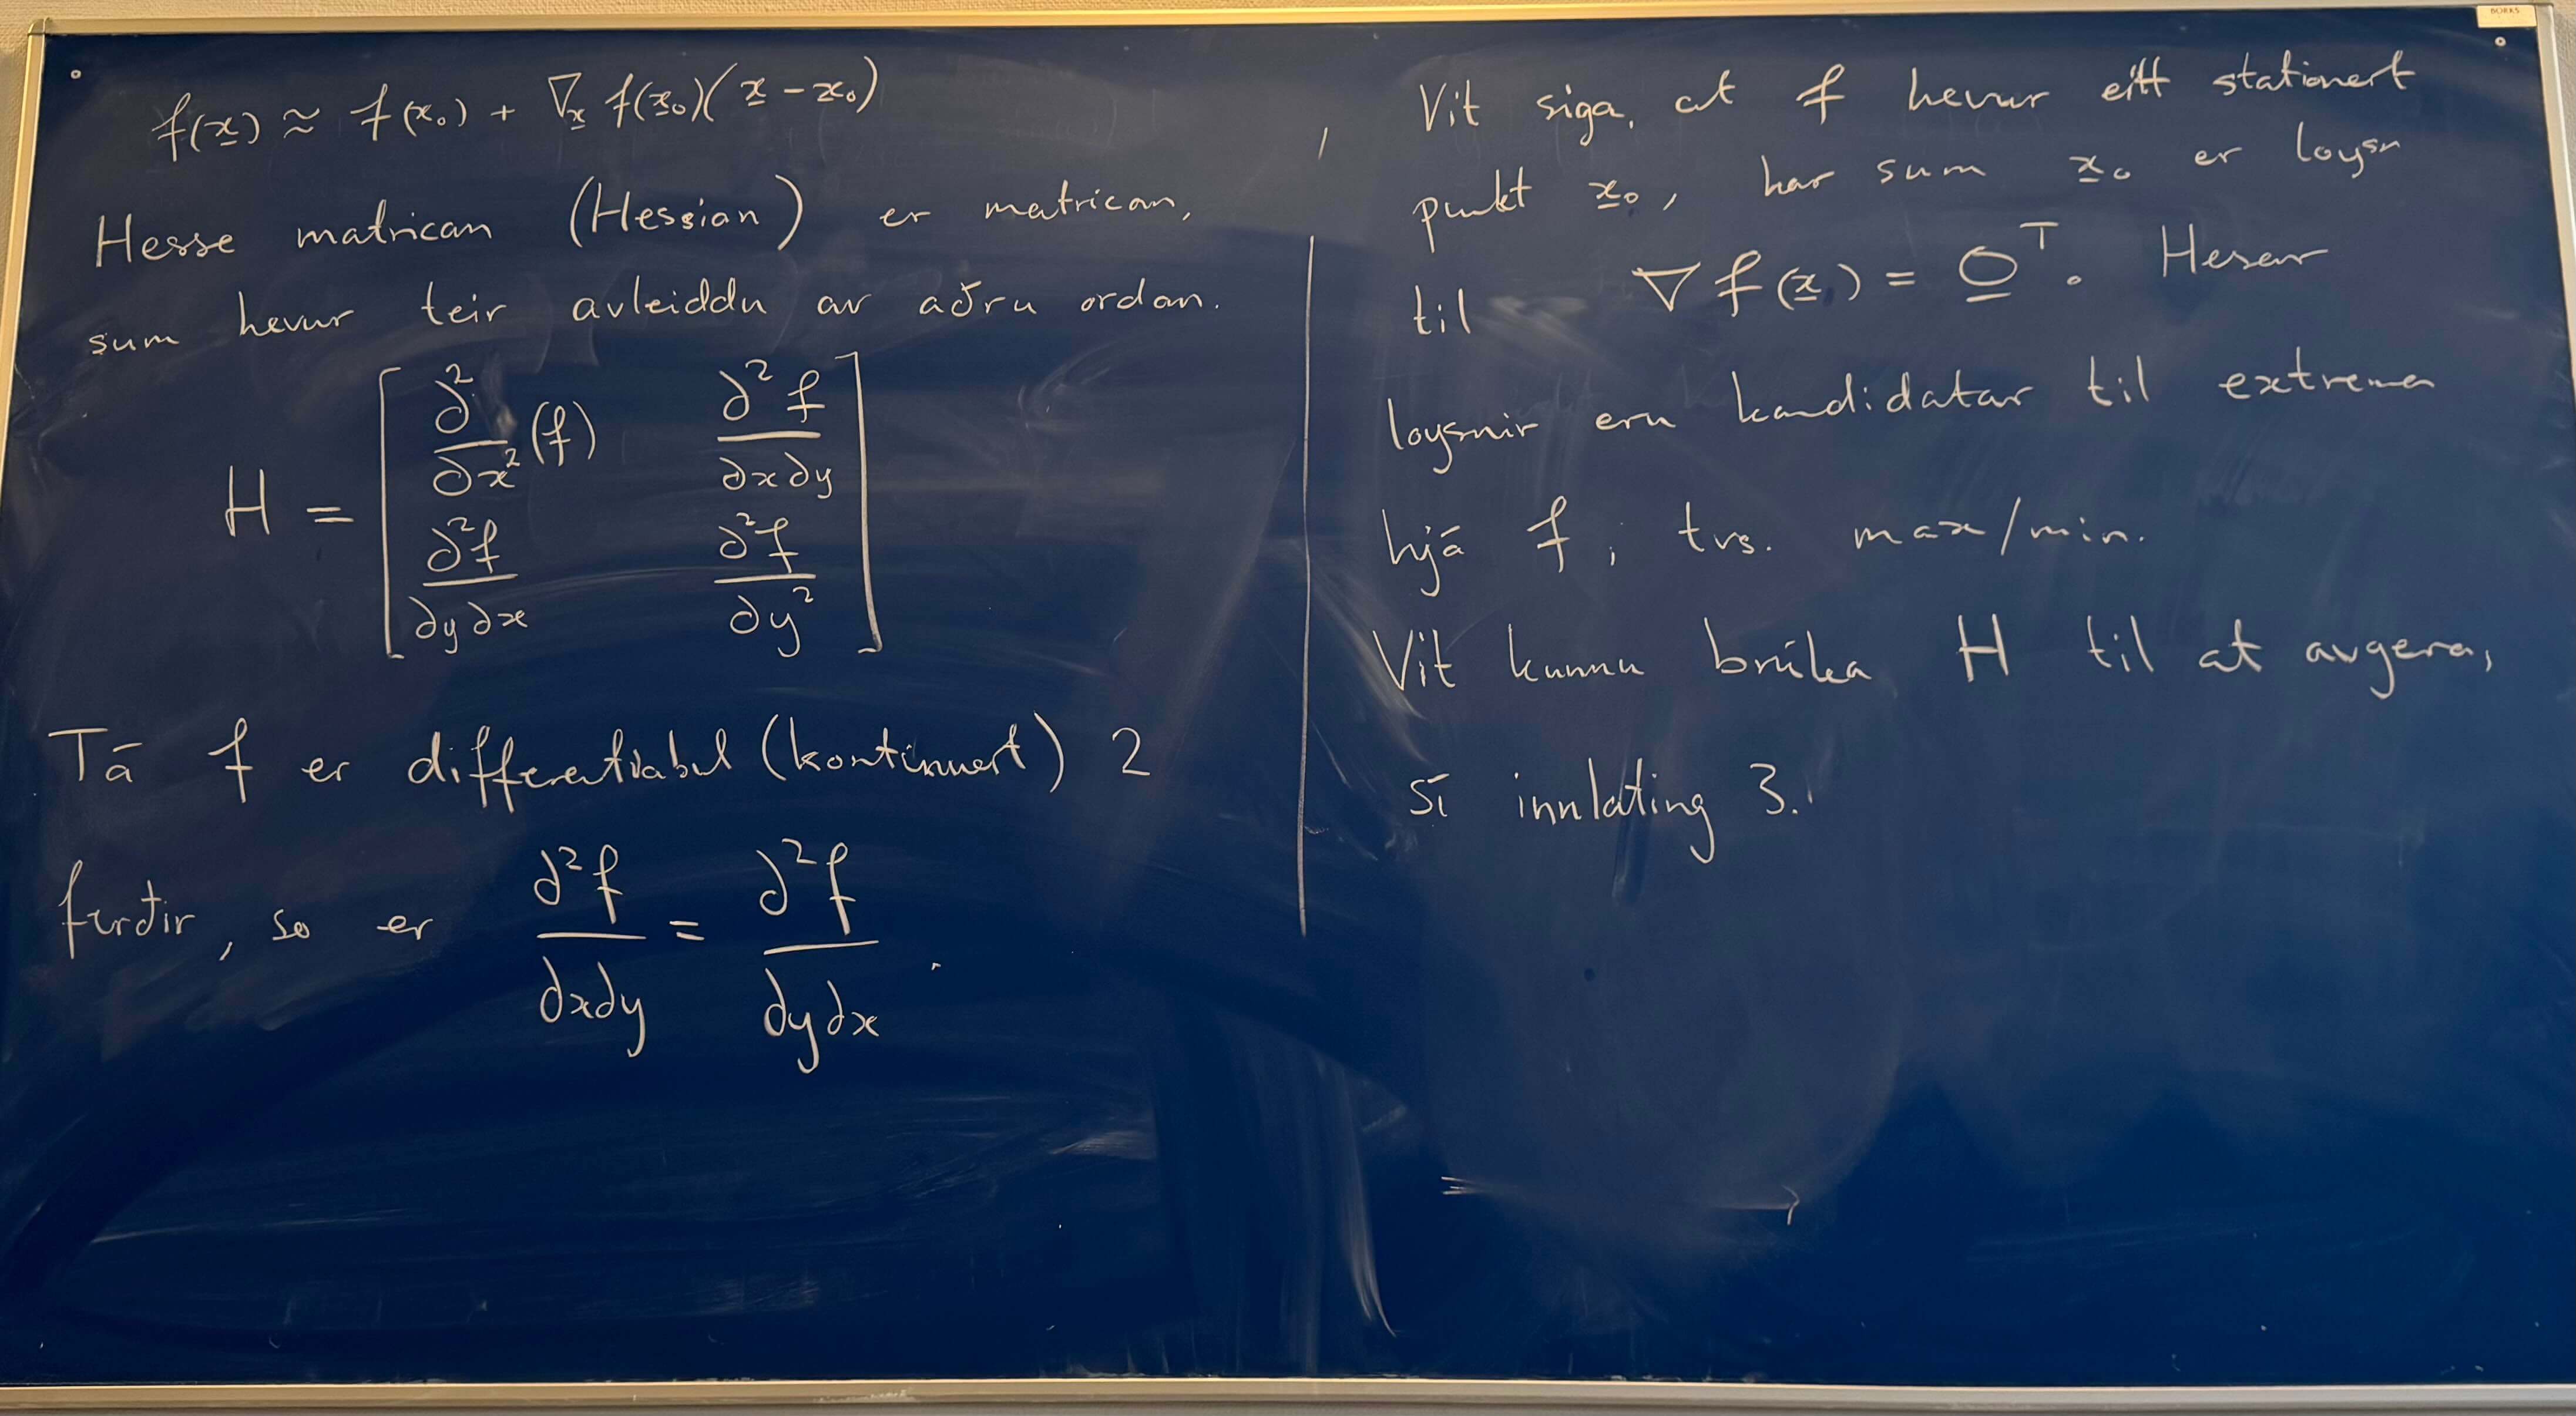 f(x) ≈ f(x₀) + ∇ₓ f(x₀)(x - x₀)
Hesse matrican (Hessian) er matrican,
sum hevur teir avleiddu av aðru ordan.
H = [ ∂²/∂x² (f)  ∂²f/∂x∂y
∂²f/∂y∂x  ∂²f/∂y² ]
Tá f er differentiabul (kontinuert) 2
ferðir, so er ∂²f/∂x∂y = ∂²f/∂y∂x .
Vit siga, at f hevur eitt stationert
punkt x₀, har sum x₀ er loysn
til ∇f(x) = 0ᵀ. Hesar
loysnir eru kandidatar til extrema
hjá f, tvs. max/min.
Vit kunnu brúka H til at avgera,
sí innlating 3.
BORKS